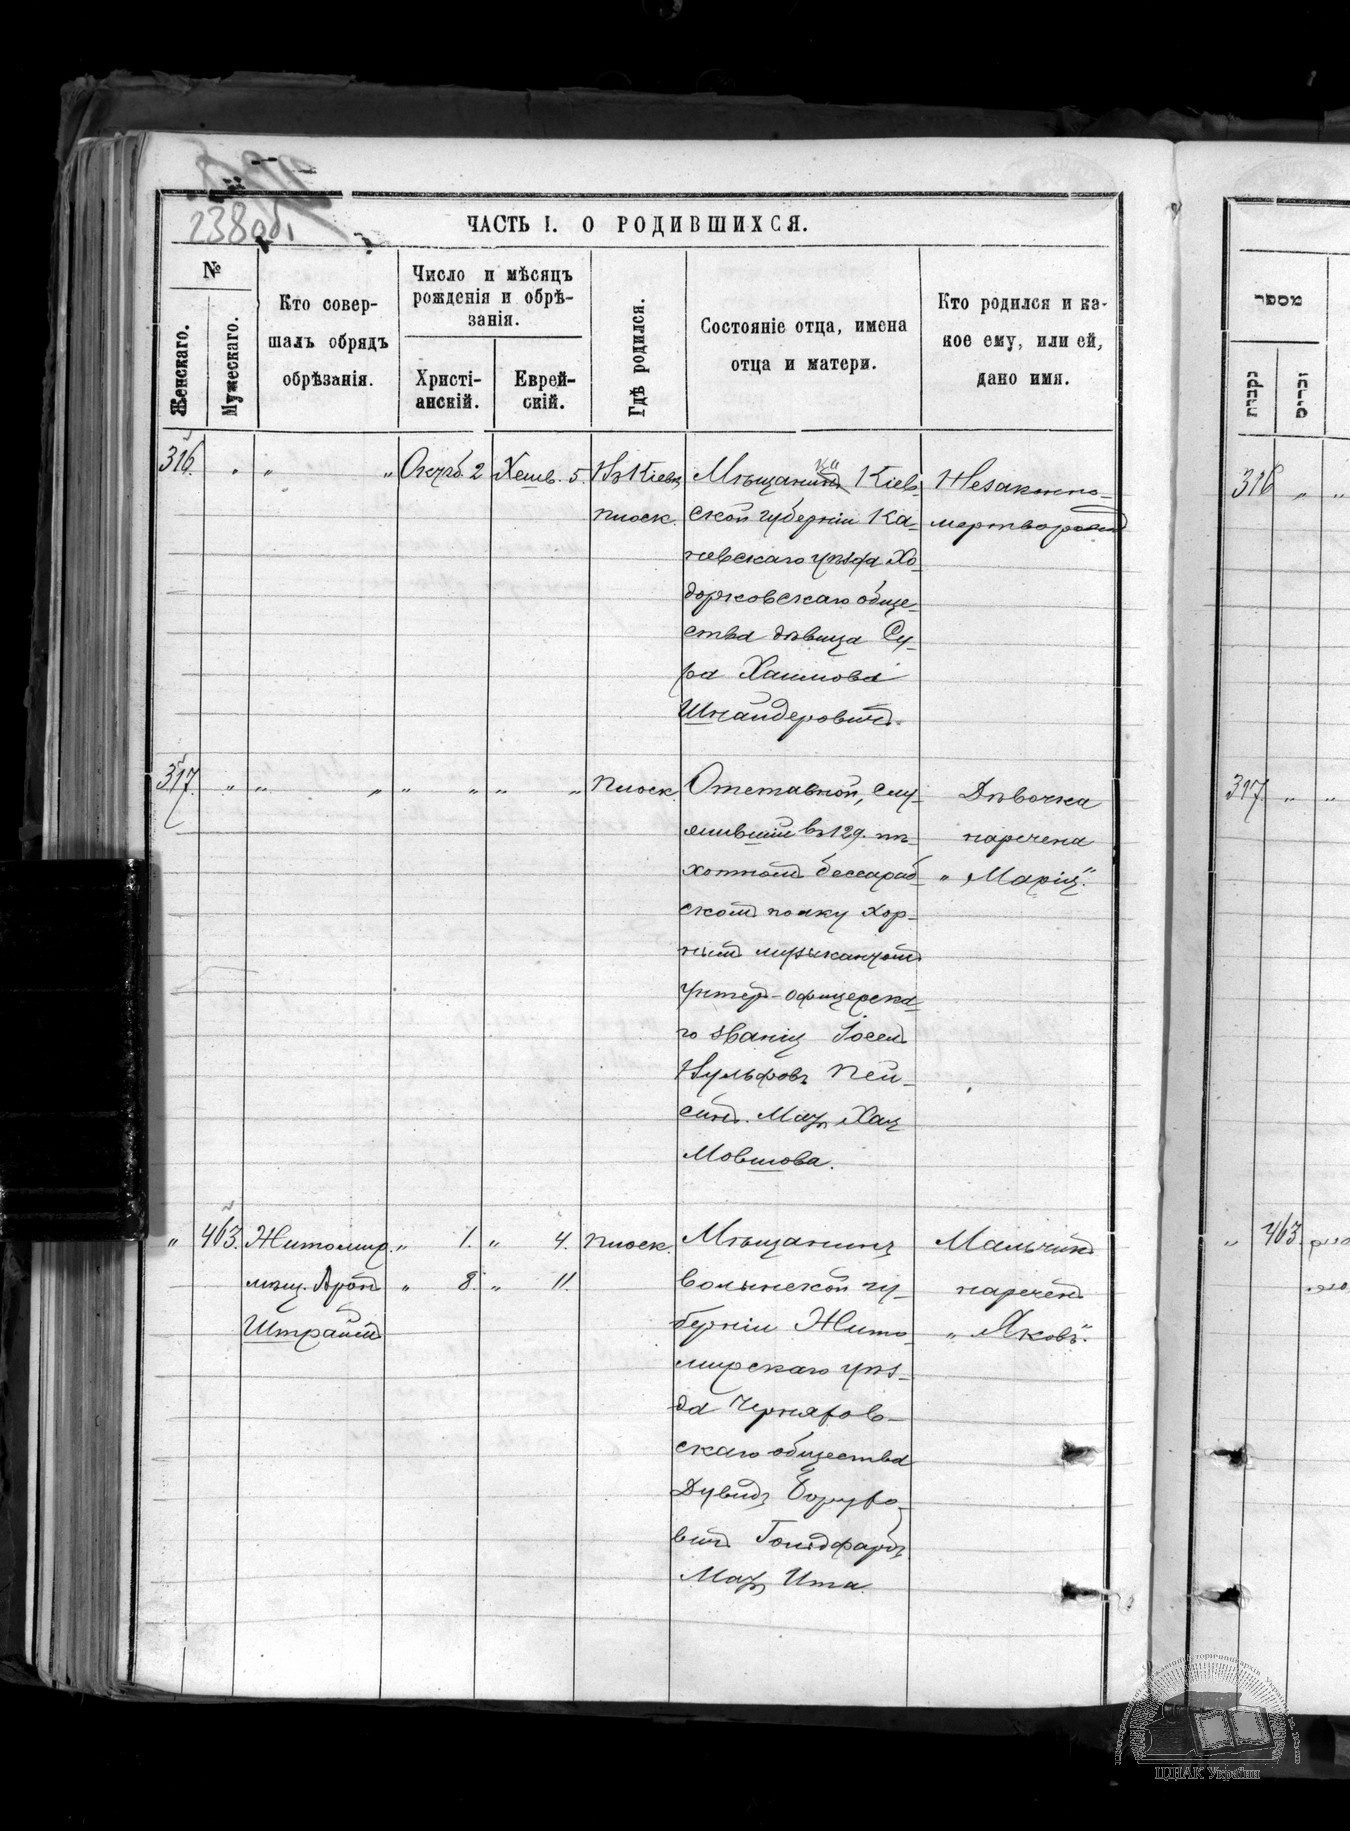 238об.
ЧАСТЬ I. О РОДИВШИХСЯ.
№
Женскаго.
Мужескаго.
Кто совер-
шалъ обрядъ
обрѣзанія.
Число и мѣсяцъ
рожденія и обрѣ-
занія.
Христі-
анскій.
Еврей-
скій.
Гдѣ родился.
Состояніе отца, имена
отца и матери.
Кто родился и ка-
кое ему, или ей,
дано имя.
316. " " " Октб. 2 Хешв. 5. Въ Кіевѣ
плоск.
Мѣщанинка Кіев-
ской губерніи Ка-
невскаго уѣзда Хо-
дорковскаго обще-
ства дѣвица Су-
ра Хаимова
Шнайдеровичъ.
Незаконно-
мертворожд
317. " " " " " " " плоск.
Отставной, слу-
жившій въ 129. пѣ-
хотномъ бессараб-
скомъ полку хор-
нымъ музыкантомъ
унтеръ-офицерска-
го званія Іосель
Вульфовъ Пей-
синъ. Мать Хая
Мовшова.
Дѣвочка
наречена
"Марія".
" 463. Житомир. " 1. " 4. плоск.
мѣщ. Аронъ " 8. " 11.
Штрайм
Мѣщанинъ
волынской гу-
берніи Жито-
мирскаго уѣз-
да Черняхов-
скаго общества
Дувидъ Борухо-
вичъ Гольдфарбъ
Мать Ита.
Мальчикъ
нареченъ
"Яковъ".
מספר
נקבות
זכרים
316 " "
317 " "
" 463.
ЦДІАК України